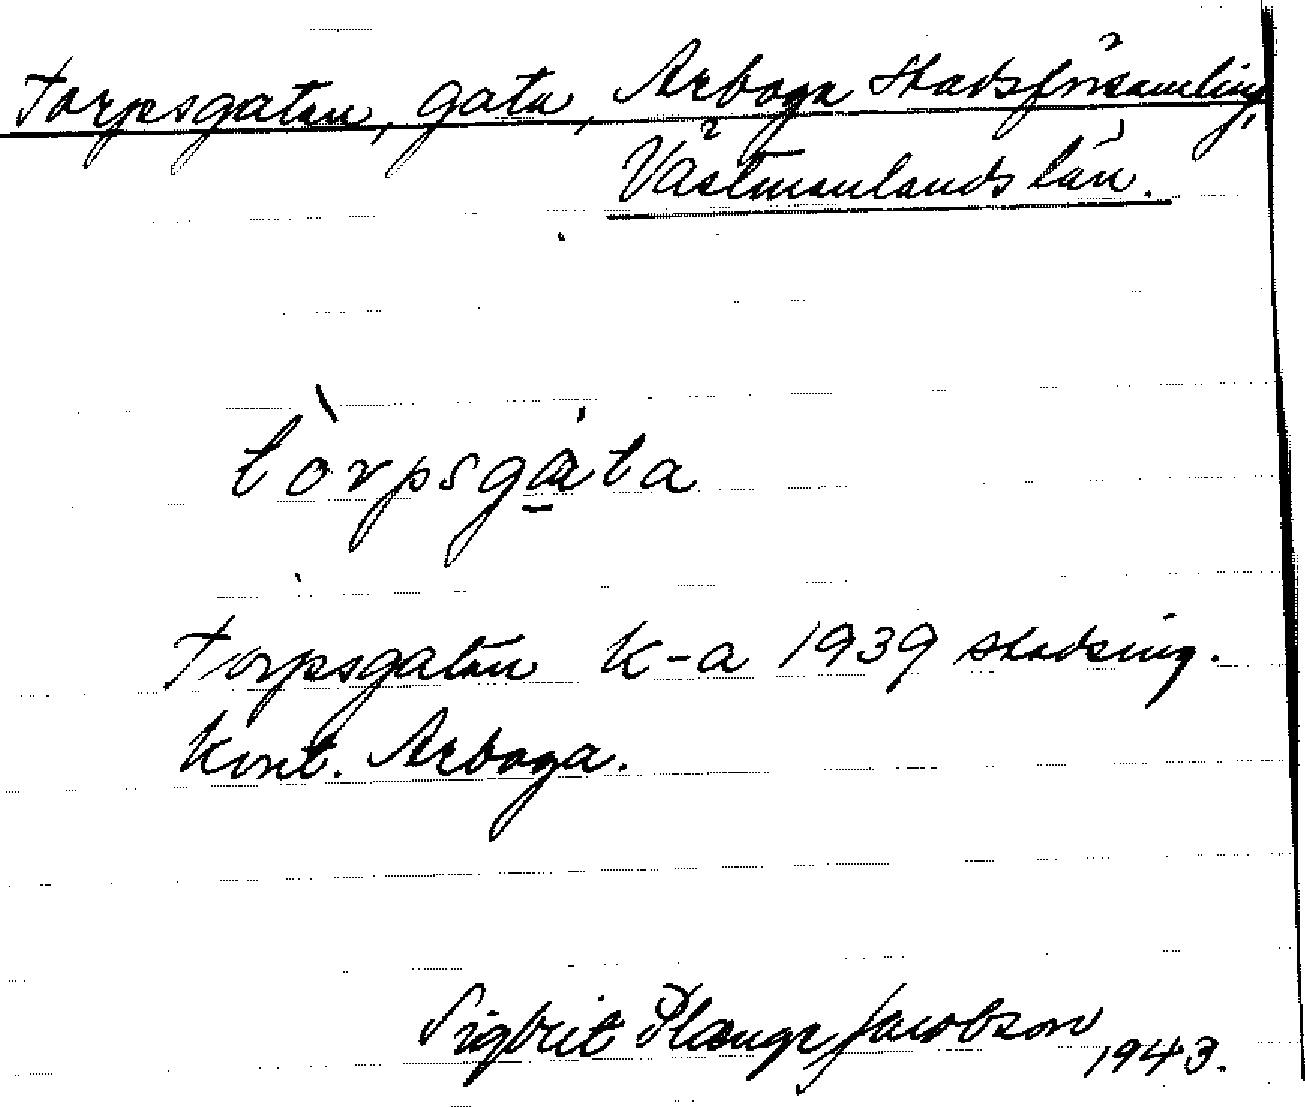 Torpsgatan, gata, Arboga stadsförsamling,
Västmanlands län.
tòrpsgáta
Torpsgatan K-a 1939 stadsing.
Kont. Arboga.
Sigbrit Plange Jacobson
1943.